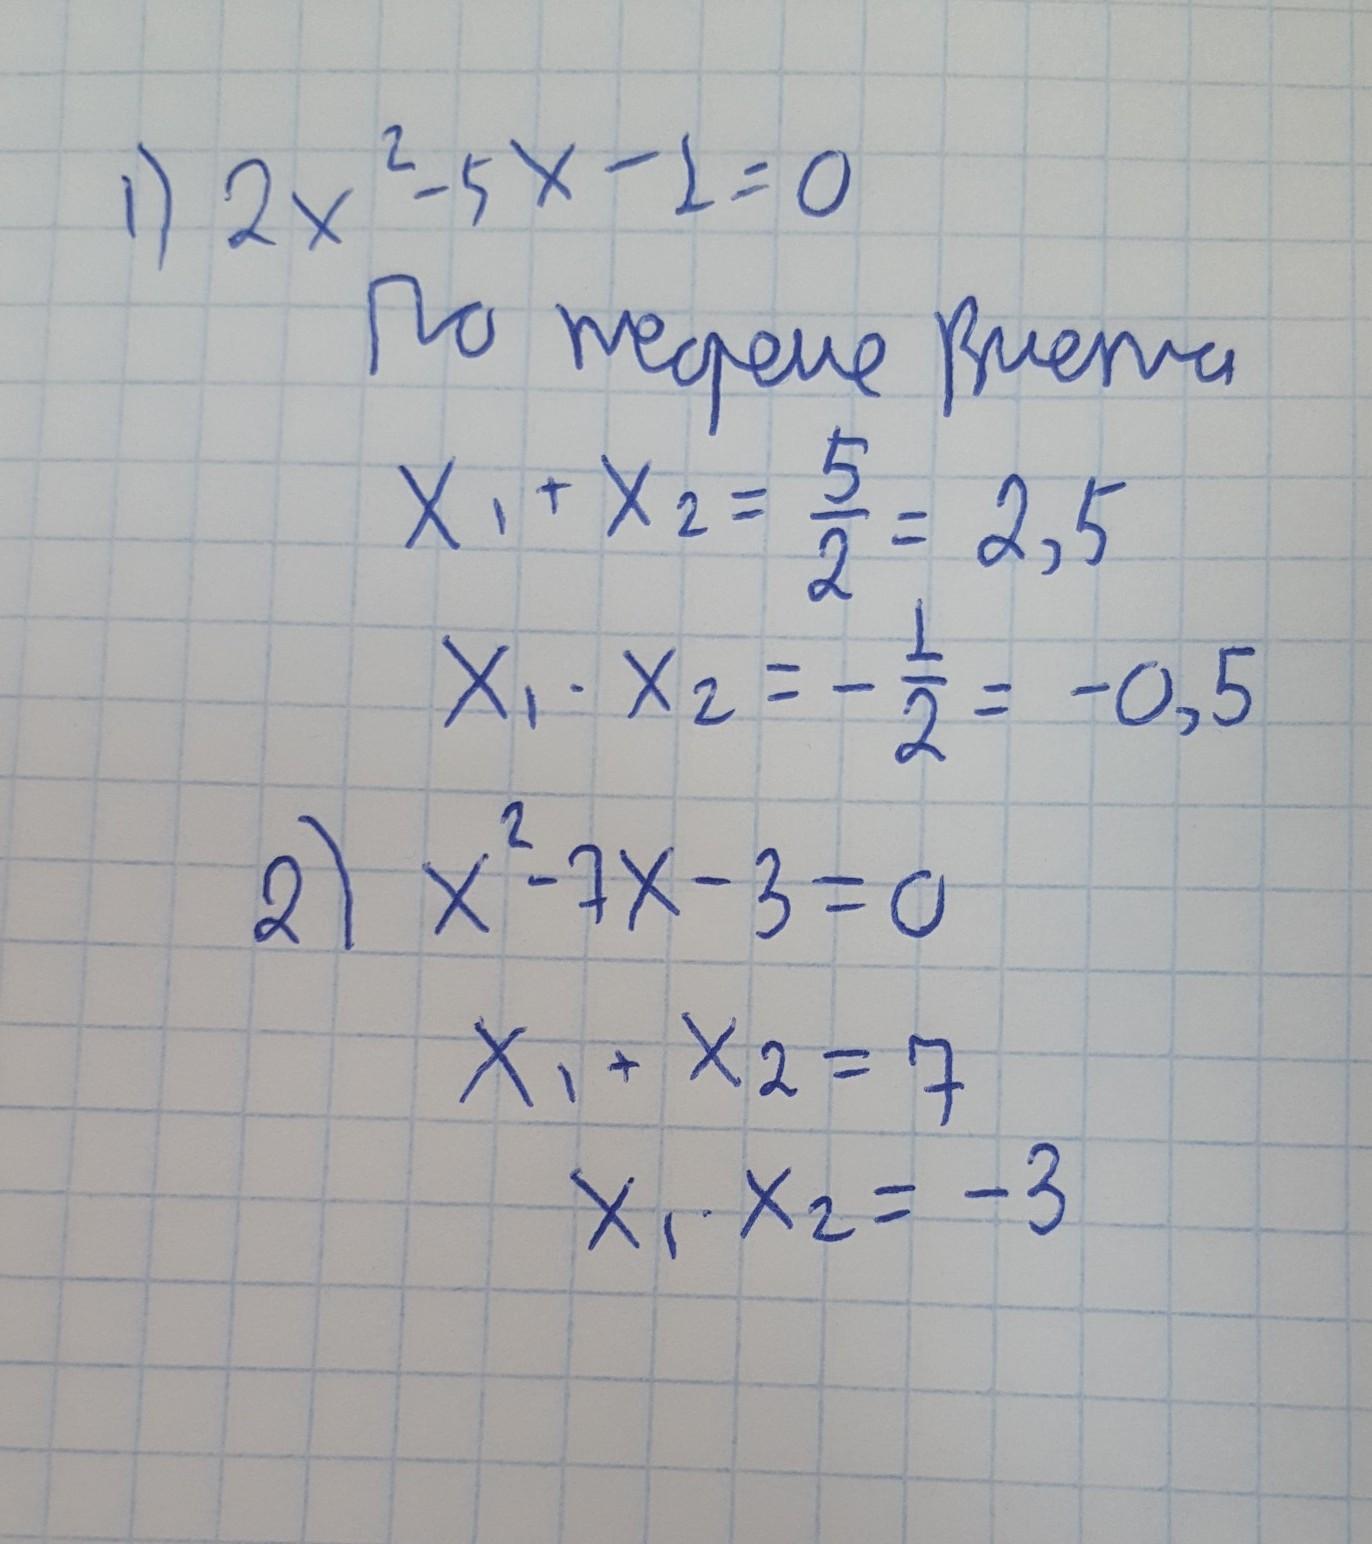 1) 2x² - 5x - 1 = 0
По теореме Виета
x₁ + x₂ = 5/2 = 2,5
x₁ · x₂ = - 1/2 = -0,5
2) x² - 7x - 3 = 0
x₁ + x₂ = 7
x₁ · x₂ = -3